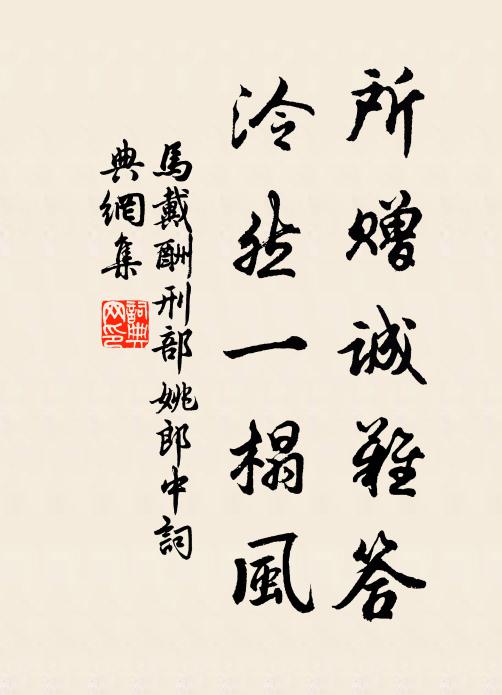 所赠誠難答
泠然一榻風
馬戴酬刑部姚郎中詞
典網集
詞典
网印